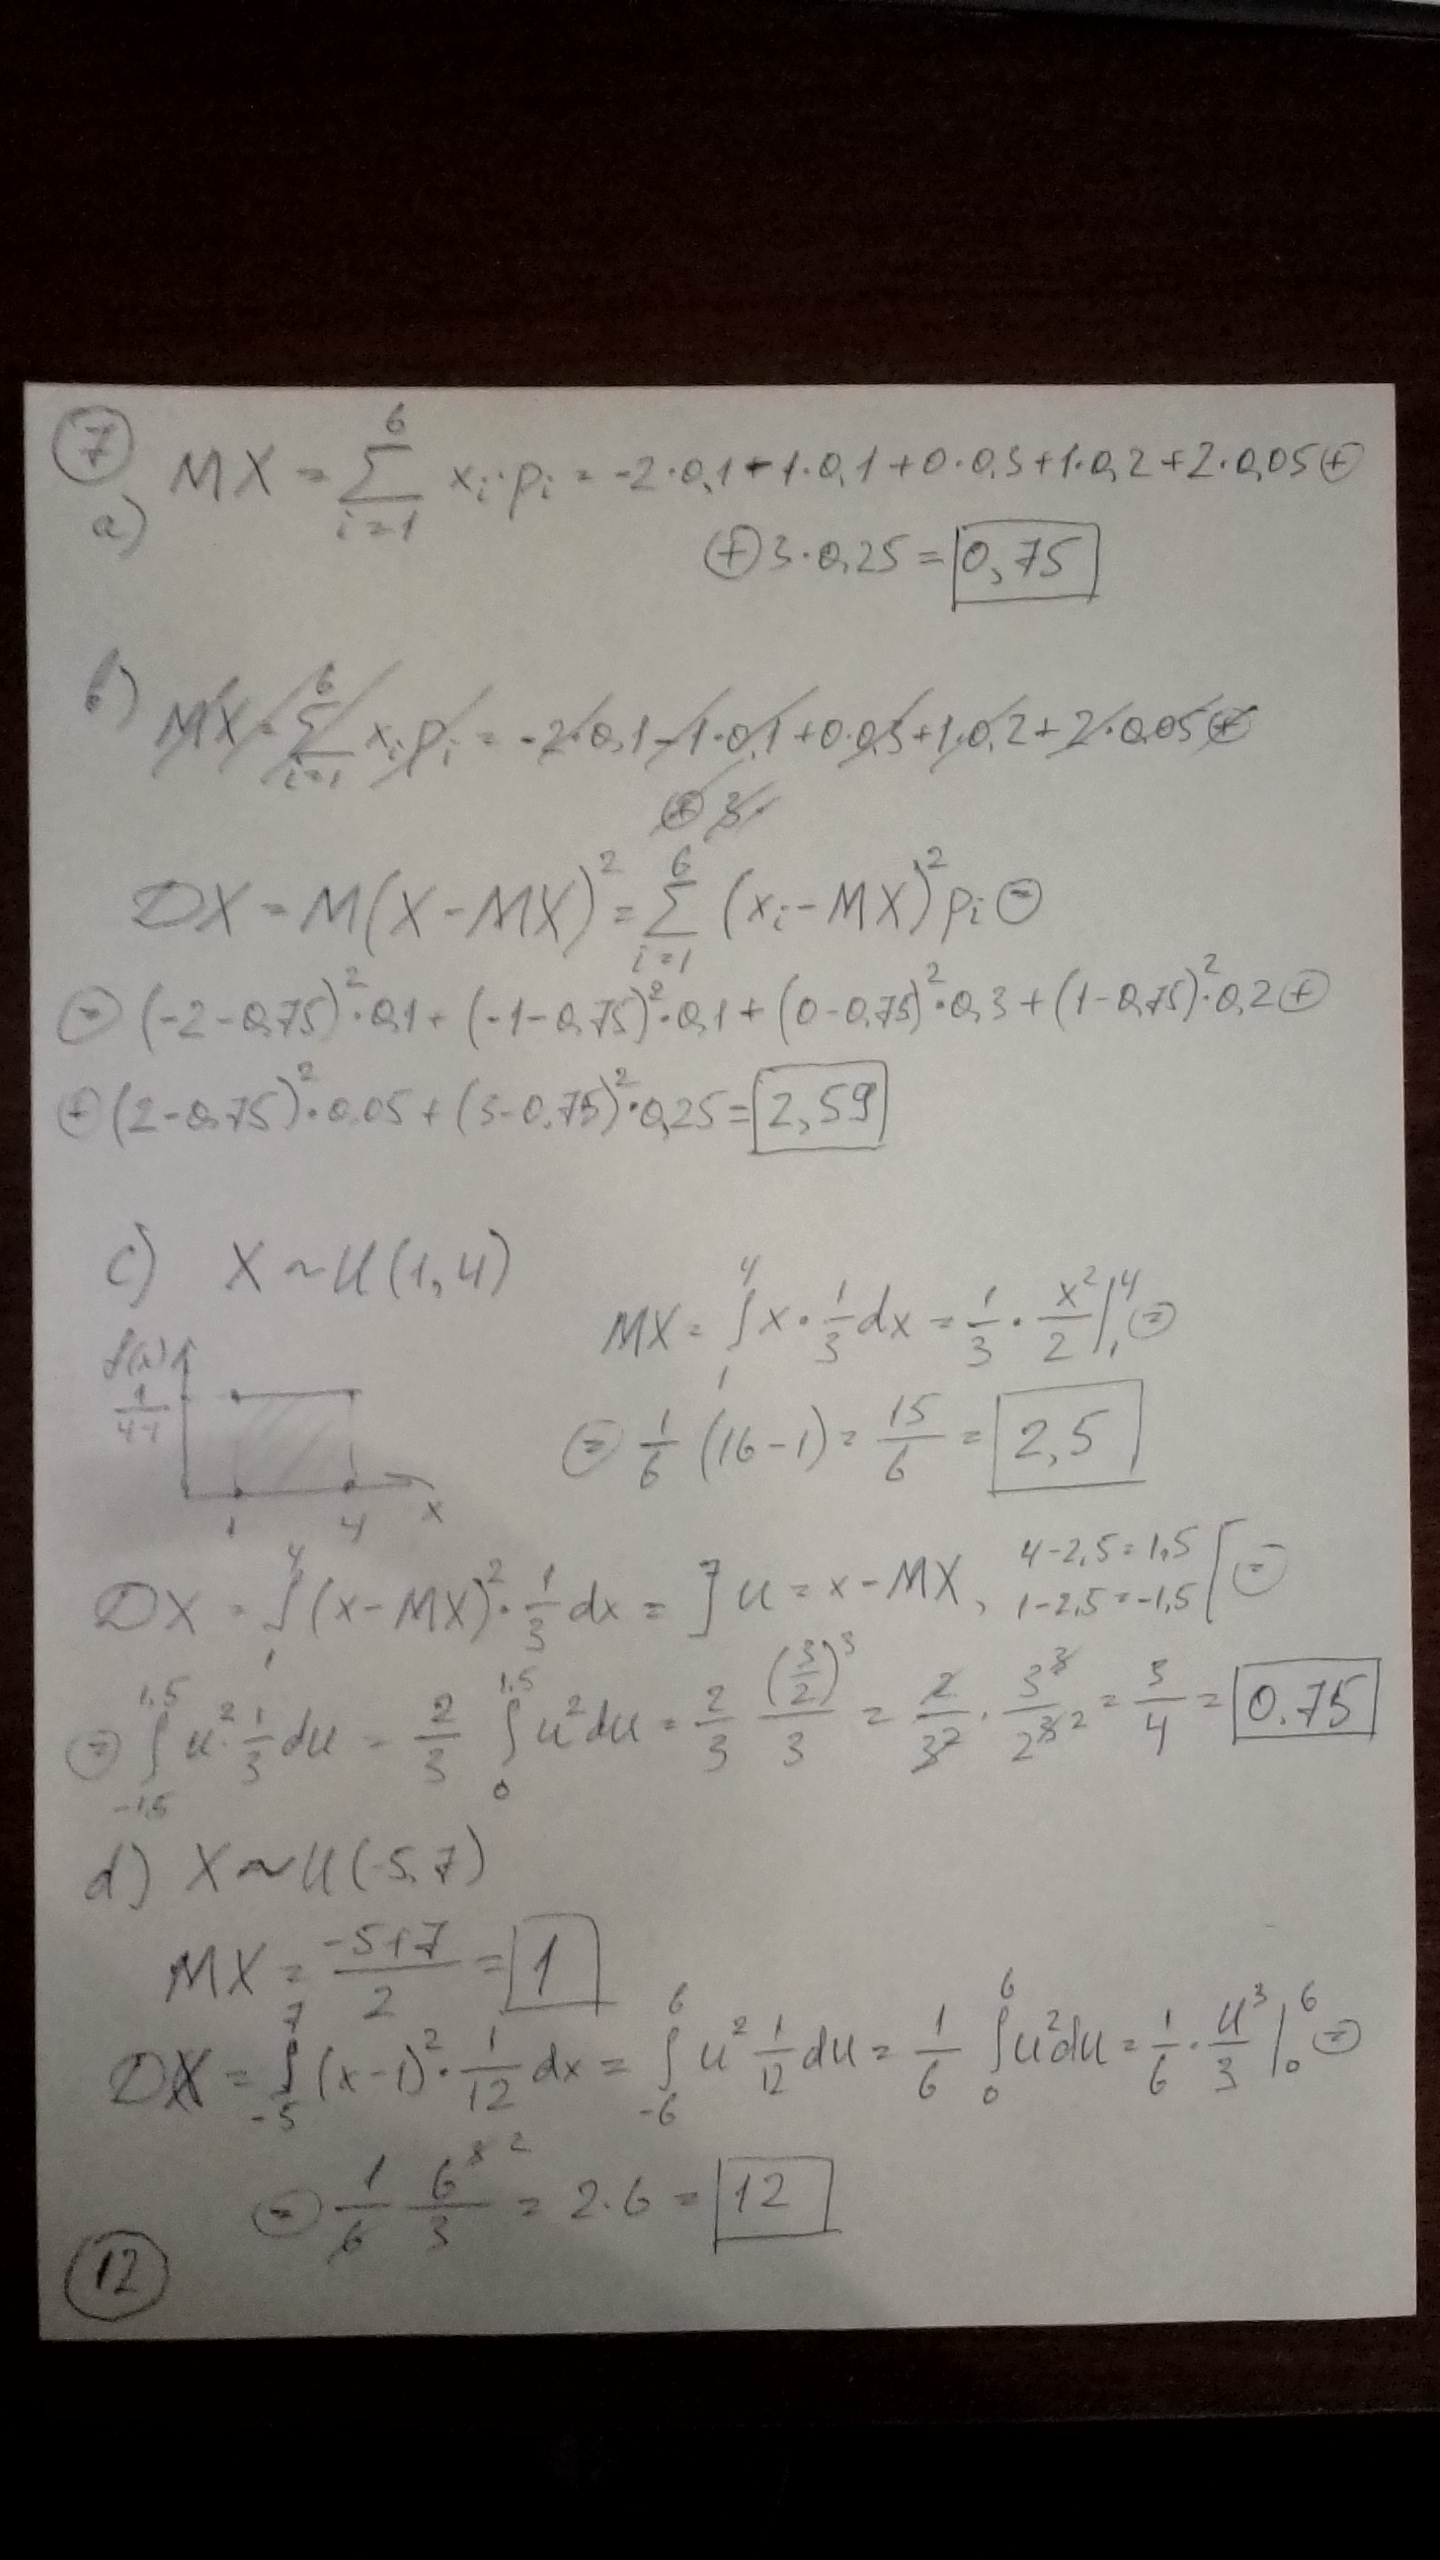 7
a) MX = ∑_{i=1}^{6} x_i · p_i = -2·0,1 - 1·0,1 + 0·0,3 + 1·0,2 + 2·0,05 ⊕
⊕ 3·0,25 = 0,75
b) MX = ∑_{i=1}^{6} x_i p_i = -2·0,1 - 1·0,1 + 0·0,3 + 1·0,2 + 2·0,05 ⊕
⊕ 3·
DX = M(X - MX)² = ∑_{i=1}^{6} (x_i - MX)² p_i ⊜
⊜ (-2-0,75)²·0,1 + (-1-0,75)²·0,1 + (0-0,75)²·0,3 + (1-0,75)²·0,2 ⊕
⊕ (2-0,75)²·0,05 + (3-0,75)²·0,25 = 2,59
c) X ~ U(1,4)
f(x)
1/(4-1)
1 4 x
MX = ∫_1^4 x · 1/3 dx = 1/3 · x²/2 |_1^4 ⊜
⊜ 1/6 (16-1) = 15/6 = 2,5
DX = ∫_1^4 (x - MX)² · 1/3 dx = ] u = x - MX, 4-2,5=1,5 1-2,5=-1,5 [ ⊜
⊜ ∫_{-1,5}^{1,5} u² · 1/3 du = 2/3 ∫_0^{1,5} u² du = 2/3 (3/2)³/3 = 2/3² · 3³/2³ ² = 3/4 = 0.75
d) X ~ U(-5,7)
MX = (-5+7)/2 = 1
DX = ∫_{-5}^7 (x-1)² · 1/12 dx = ∫_{-6}^6 u² 1/12 du = 1/6 ∫_0^6 u² du = 1/6 · u³/3 |_0^6 ⊜
⊜ 1/6 6³ ²/3 = 2·6 = 12
12